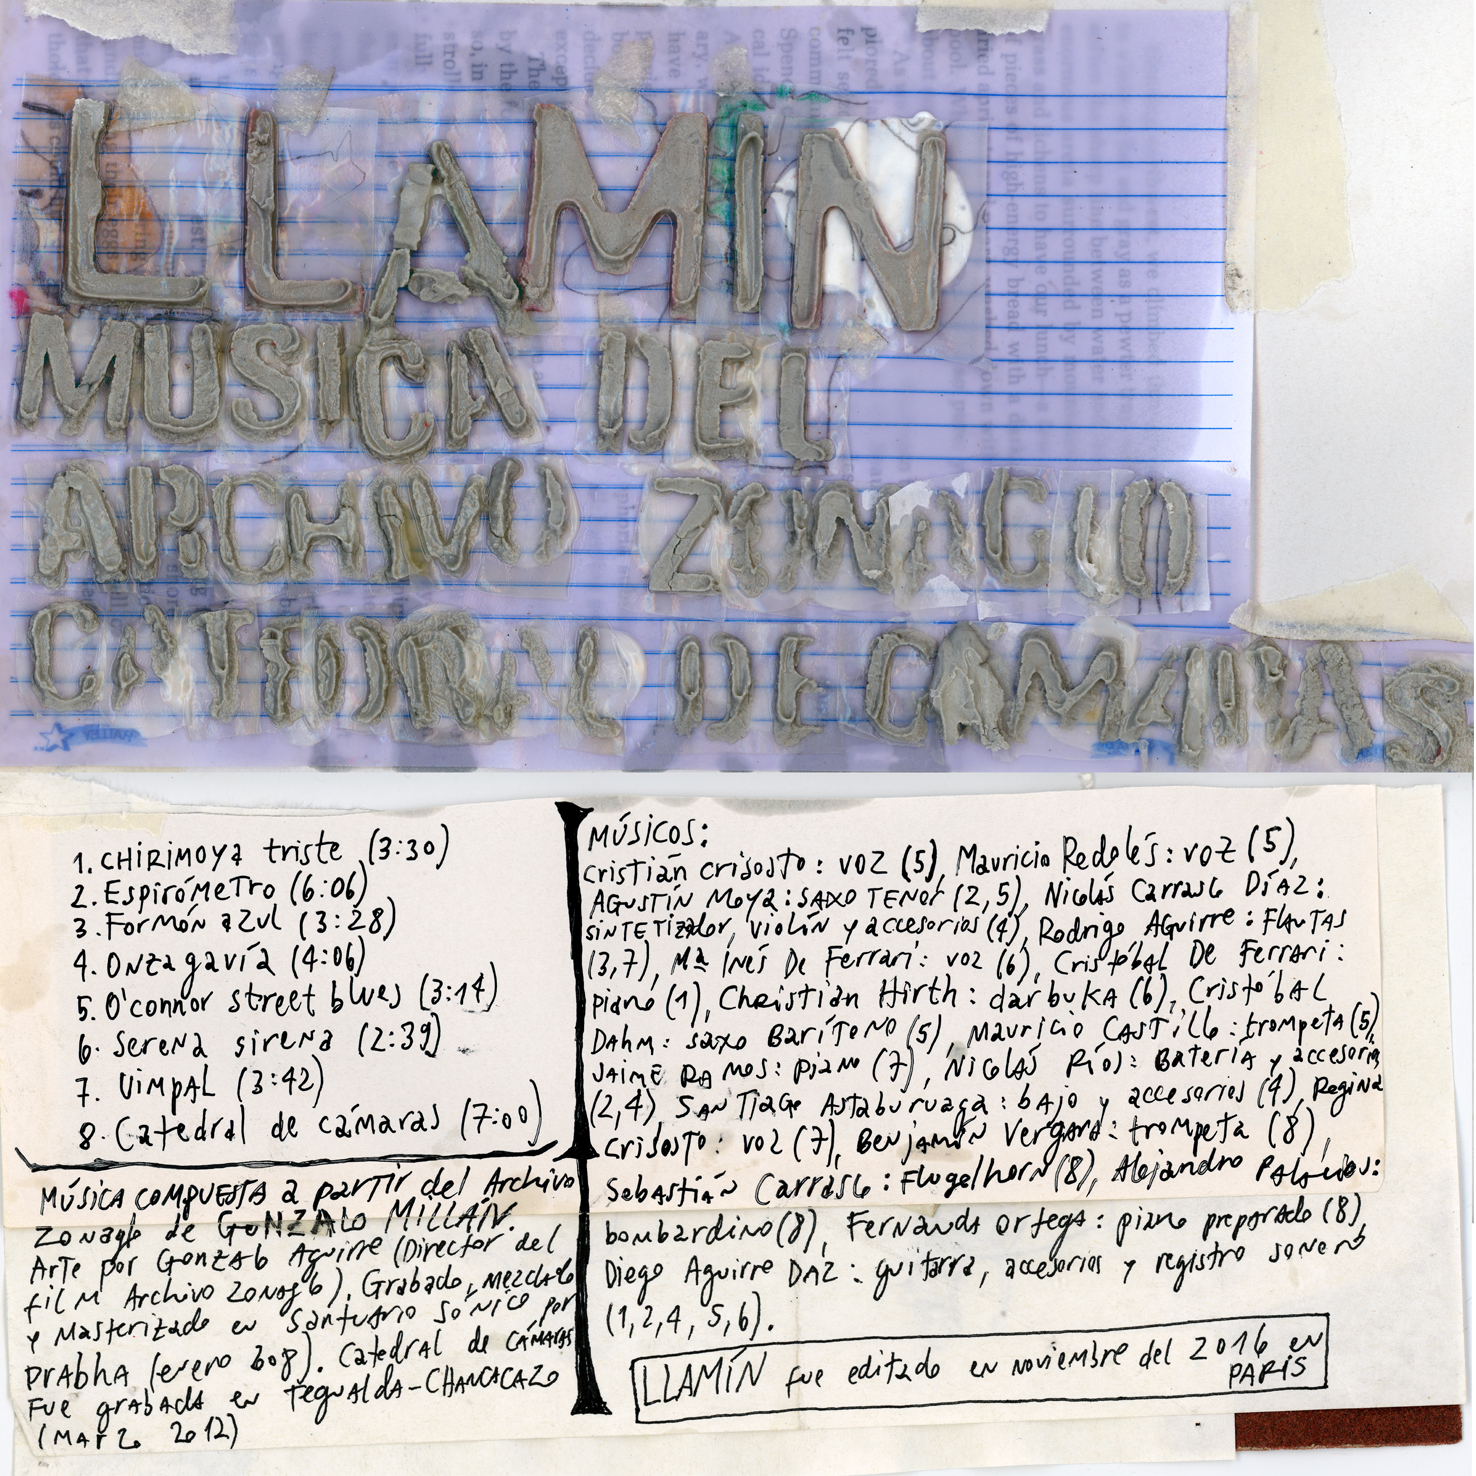 LLAMÍN
MUSICA DEL
ARCHIVO ZONAGLO
CATEDRAL DE CAMARAS
1. CHiRiMOYa triste (3:30)
2. Espirómetro (6:06)
3. Formón azul (3:28)
4. Onzagavía (4:06)
5. O'connor street blues (3:14)
6. Serena sirena (2:39)
7. Vimpal (3:42)
8. Catedral de cámaras (7:00)
MÚSICA COMPUESTA a partir del Archivo
Zonaglo de GONZALO MILLÁN.
Arte por Gonzalo Aguirre (Director del
film Archivo Zonaglo). Grabado, mezclado
y Masterizado en Santuario Sónico por
Prabha (enero 2008). Catedral de cámaras
Fue grabada en Tegualda-CHANCACAZO
(Marzo 2012)
MÚSICOS:
Cristián Crisosto: voz (5), Mauricio Redolés: voz (5),
Agustín Moya: SAXO TENOR (2,5), Nicolás Carrasco Díaz:
sintetizador, violín y accesorios (4), Rodrigo Aguirre: FLAUTAS
(3,7), Mª Inés De Ferrari: voz (6), Cristóbal De Ferrari:
piano (1), Christian Hirth: darbuka (6), Cristóbal
Dahm: saxo Barítono (5), Mauricio Castillo: trompeta (5),
Jaime Ramos: piano (7), Nicolás Ríos: Batería y accesorios
(2,4), Santiago Astaburuaga: bajo y accesorios (4), Regina
Crisosto: voz (7), Benjamín Vergara: trompeta (8),
Sebastián Carrasco: Flugelhorn (8), Alejandro Palacios:
bombardino (8), Fernanda Ortega: piano preparado (8),
Diego Aguirre DAZ: guitarra, accesorios y registro sonoro
(1,2,4,5,6).
LLAMÍN fue editado en noviembre del 2016 en
PARÍS